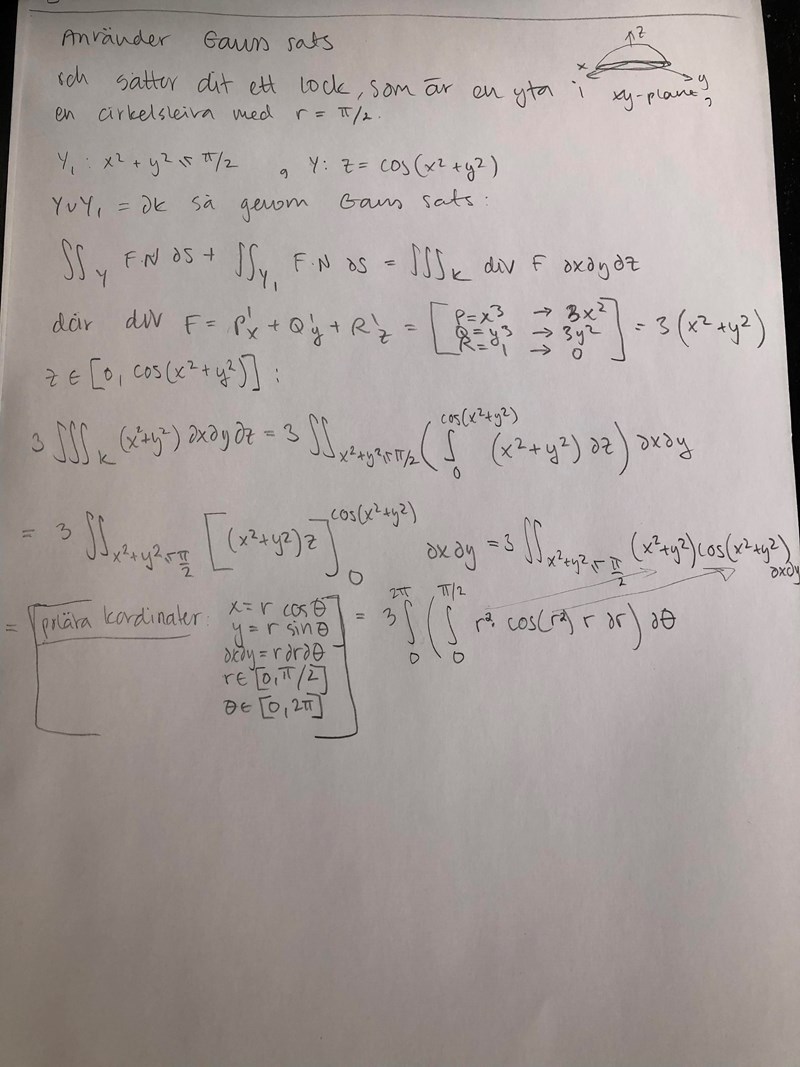 Använder Gauss sats
z
och sätter dit ett lock, som är en yta i xy-planet,
x y
en cirkelskiva med r = π/2.
Y₁ : x² + y² ≤ π/2 , Y: z = cos(x² + y²)
Y∪Y₁ = ∂K så genom Gauss sats:
∬_Y F·N ∂S + ∬_Y₁ F·N ∂S = ∭_K div F ∂x∂y∂z
där div F = P'x + Q'y + R'z = [P=x³ → 3x² Q=y³ → 3y² R=1 → 0] = 3(x²+y²)
z ∈ [0, cos(x²+y²)] :
3∭_K (x²+y²) ∂x∂y∂z = 3∬_x²+y²≤π/2 (∫₀^cos(x²+y²) (x²+y²) ∂z) ∂x∂y
= 3∬_x²+y²≤π/2 [(x²+y²)z]₀^cos(x²+y²) ∂x∂y = 3∬_x²+y²≤π/2 (x²+y²)cos(x²+y²) ∂x∂y
= [polära kordinater: x = r cosθ = 3∫₀^2π (∫₀^π/2 r² cos(r²) r ∂r) ∂θ
y = r sinθ
∂x∂y = r∂r∂θ
r∈[0,π/2]
θ∈[0,2π]]